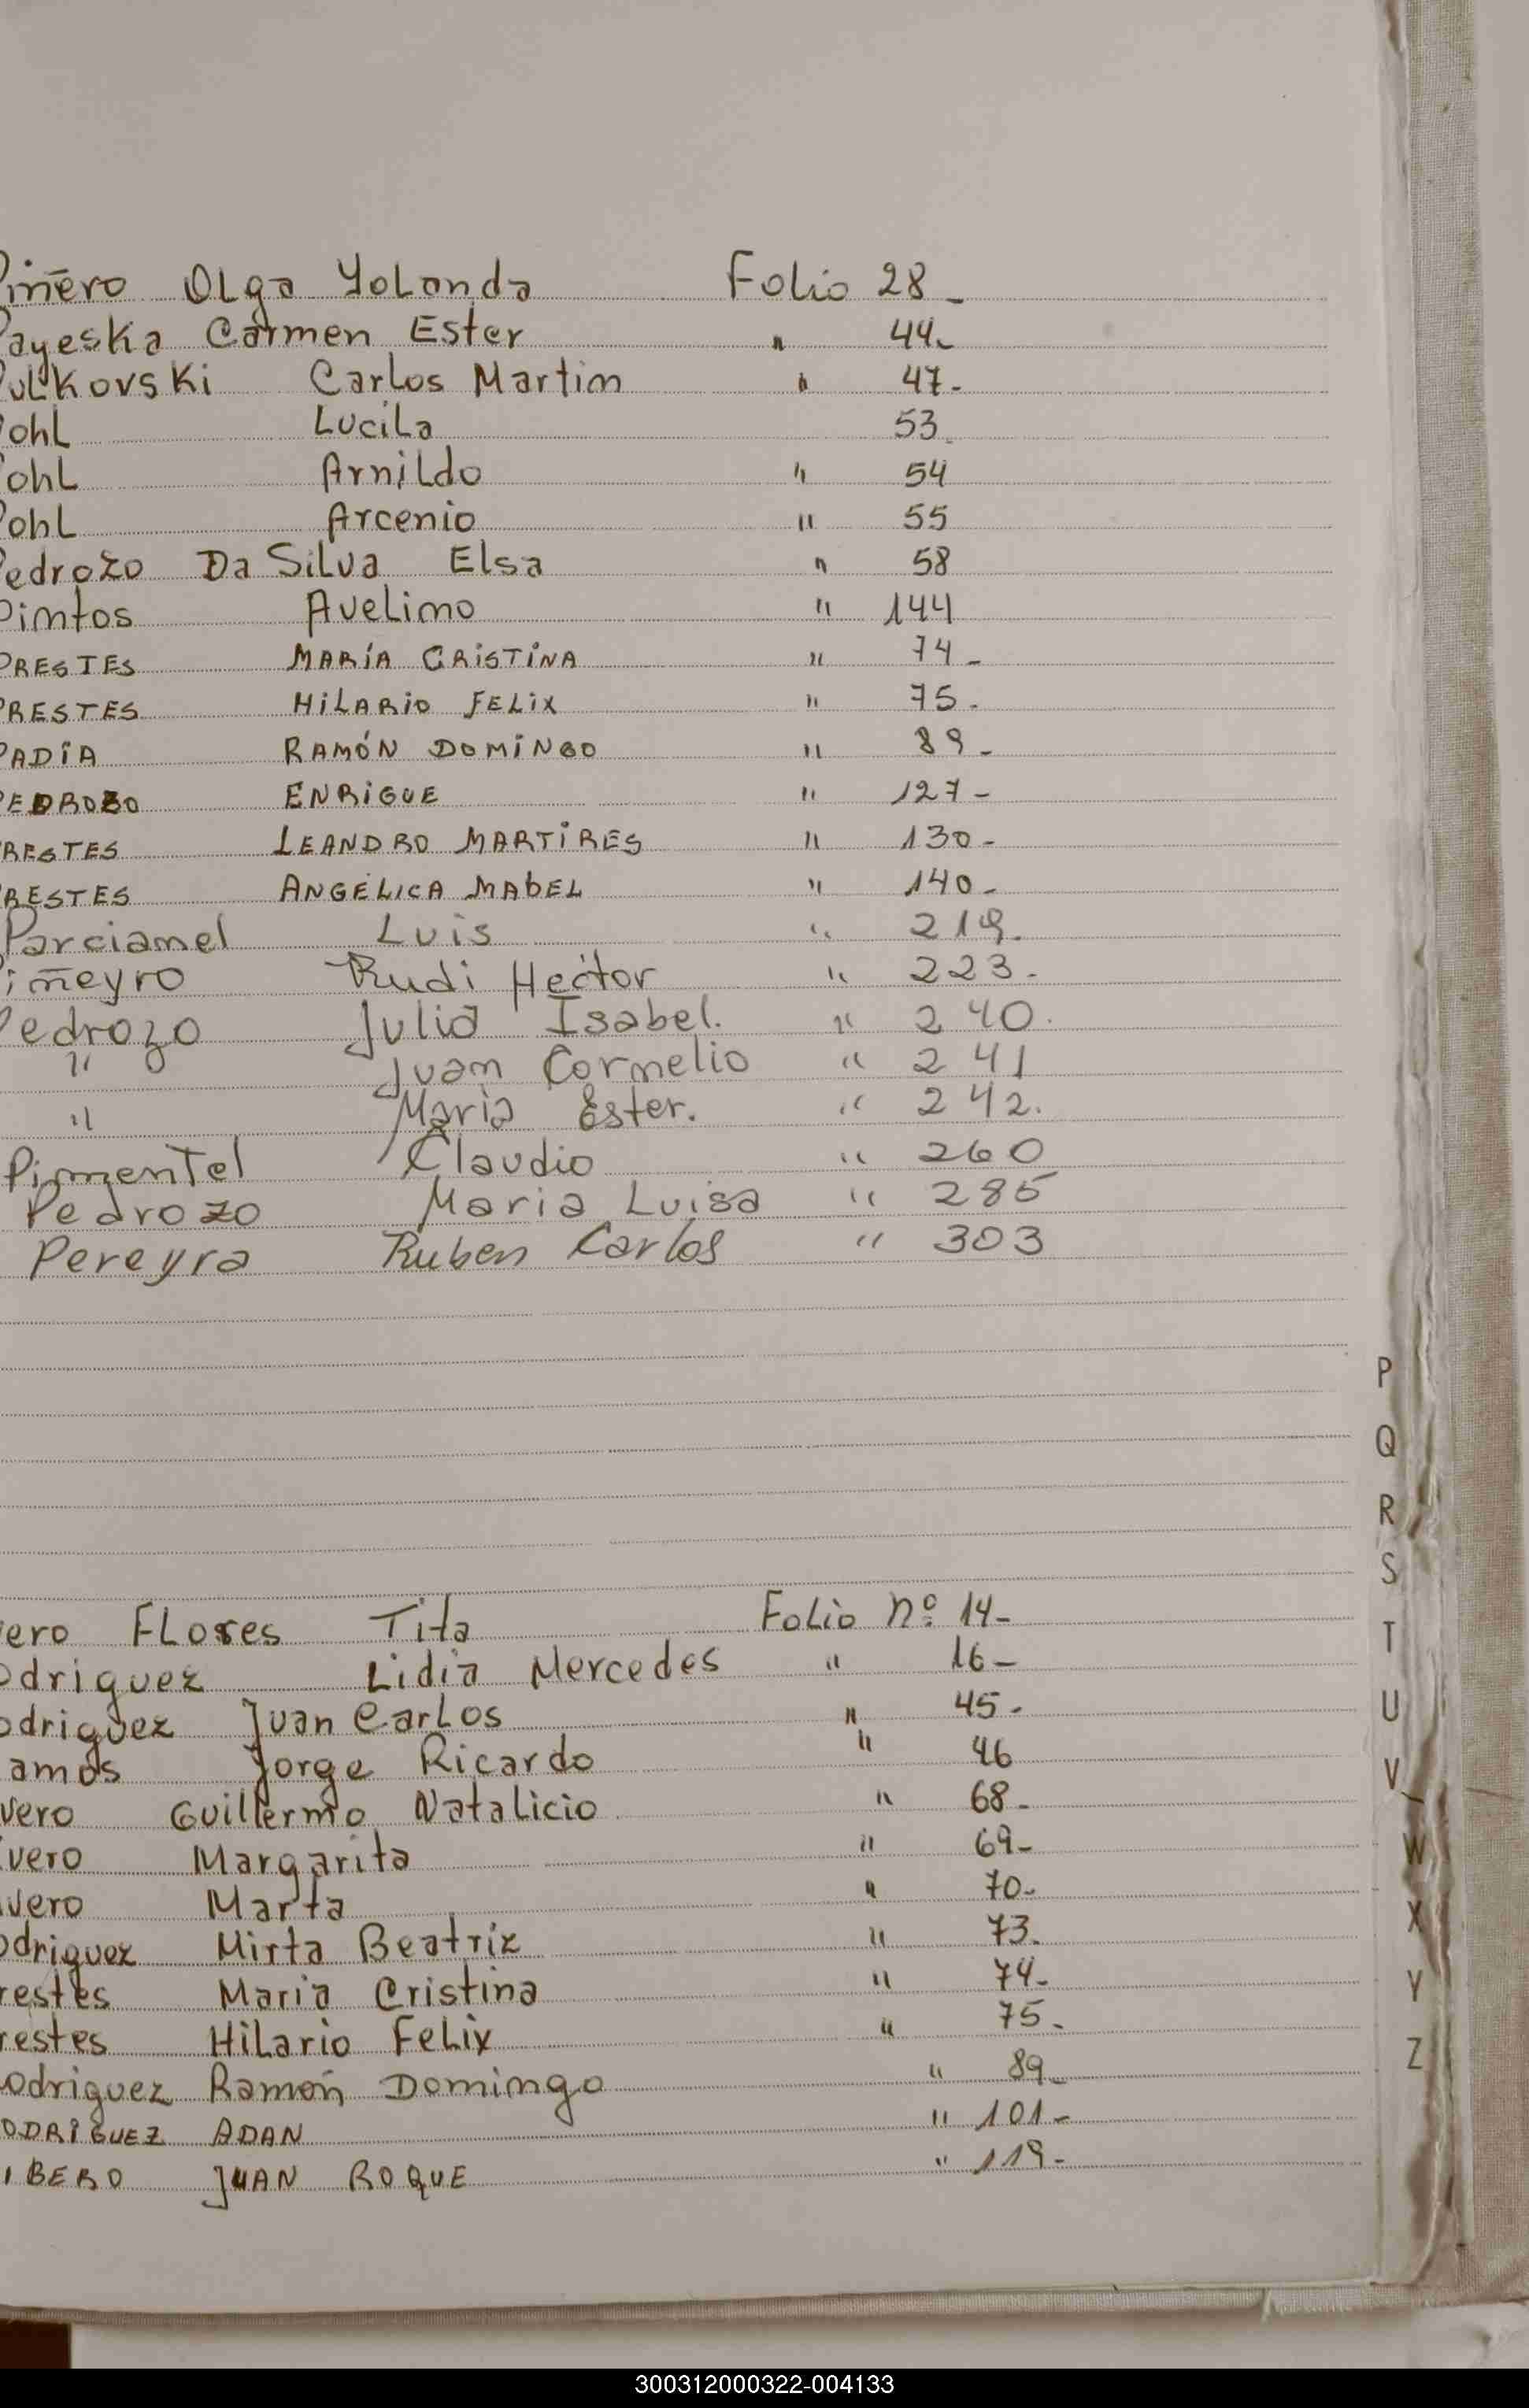 Piñero Olga Yolanda Folio 28-
Payeska Carmen Ester " 44-
Pulkovski Carlos Martin " 47-
Pohl Lucila 53
Pohl Arnildo " 54
Pohl Arcenio " 55
Pedrozo Da Silva Elsa " 58
Pintos Avelino " 144
PRESTES MARÍA CRISTINA " 74-
PRESTES HILARIO FELIX " 75-
PADIA RAMÓN DOMINGO " 89-
PEDROZO ENRIQUE " 127-
RESTES LEANDRO MARTIRES " 130-
RESTES ANGÉLICA MABEL " 140-
Parcianel Luis " 219.
iñeyro Rudi Hector " 223-
Pedrozo Julia Isabel. " 240.
" Juan Cornelio " 241
" Maria Ester. " 242.
Pimentel Claudio " 260
Pedrozo Maria Luisa " 285
Pereyra Ruben Carlos " 303
P
Q
R
S
ero Flores Tita Folio nº 14-
odriguez Lidia Mercedes " 16-
T
odriguez Juan Carlos " 45-
U
amos Jorge Ricardo " 46
V
vero Guillermo Natalicio " 68-
ivero Margarita " 69-
W
ivero Marta " 70-
X
odriguez Mirta Beatriz " 73-
restes Maria Cristina " 74-
Y
restes Hilario Felix " 75-
Z
odriguez Ramón Domingo " 89-
ODRIGUEZ ADAN " 101-
IBERO JUAN ROQUE " 119-
300312000322-004133